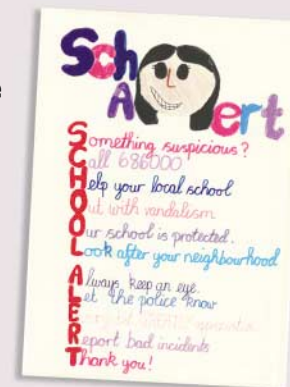 School
Alert
Something suspicious?
Call 686000
Help your local school
Out with vandalism
Our school is protected.
Look after your neighbourhood
Always keep an eye.
Let the police know
Report bad incidents
Thank you!